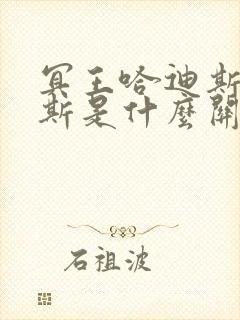 冥王哈迪斯
斯是什麼關
石祖波